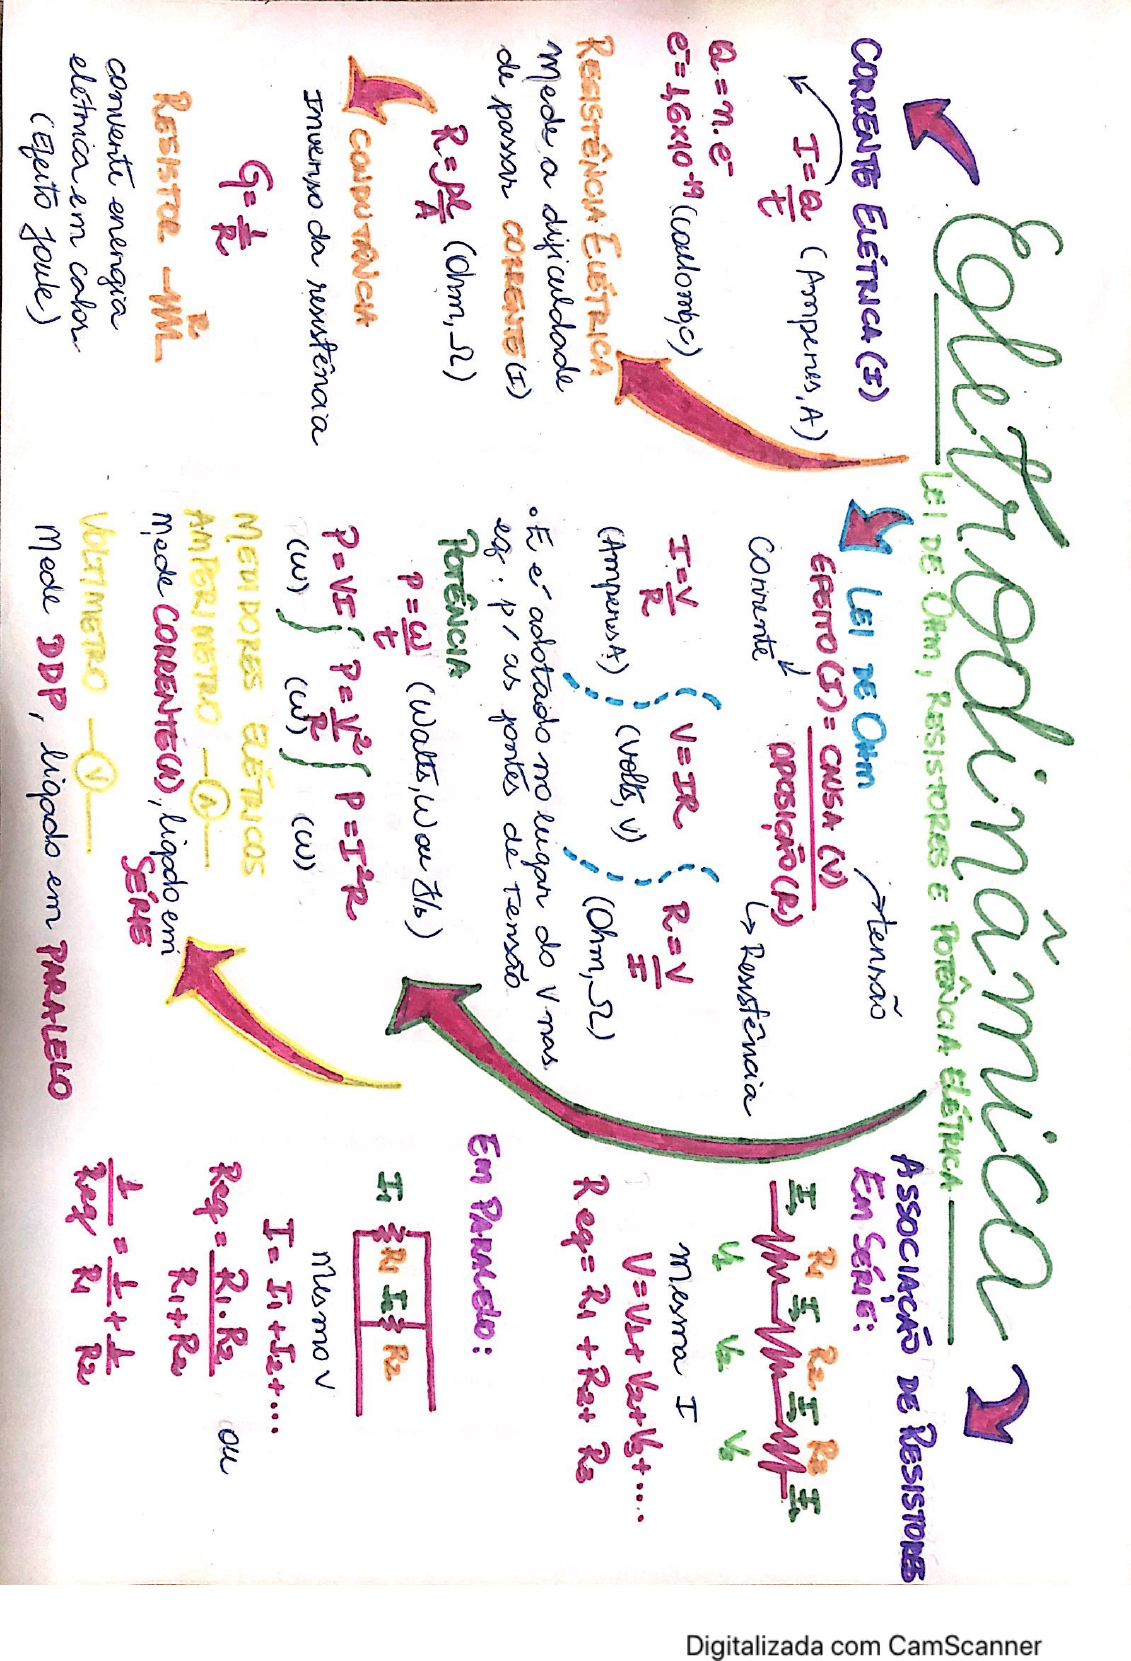 Eletrodinâmica
LEI DE OHM, RESISTORES E POTÊNCIA ELÉTRICA
CORRENTE ELÉTRICA (I)
I = Q/t (Amperes, A)
Q = n.e⁻
e⁻ = 1,6x10⁻¹⁹ (Coulomb,C)
RESISTÊNCIA ELÉTRICA
Mede a dificuldade
de passar CORRENTE (I)
R = ρl/A (Ohm, Ω)
CONDUTÂNCIA
Inverso da resistência
G = 1/R
RESISTOR R
converte energia
elétrica em calor
(Efeito Joule)
LEI DE OHM
tensão
EFEITO (I) = CAUSA (V)/OPOSIÇÃO (R)
Corrente
Resistência
I = V/R V = IR R = V/I
(Amperes A) (Volts, V) (Ohm, Ω)
• E é adotado no lugar do V nas
eq: p/ as fontes de tensão
POTÊNCIA
P = W/t (Watts, W ou J/s)
P = VI P = V²/R P = I²R
(W) (W) (W)
MEDIDORES ELÉTRICOS
AMPERIMETRO A
Mede CORRENTE (A), ligado em
SÉRIE
VOLTIMETRO V
Mede DDP, ligado em PARALELO
ASSOCIAÇÃO DE RESISTORES
EM SÉRIE:
R1 R2 R3
I I I I
V1 V2 V3
mesma I
V = V1 + V2 + V3 + ....
Req = R1 + R2 + R3
EM PARALELO:
I1 R1 I2 R2
mesmo V
I = I1 + I2 + ...
Req = R1 . R2/R1 + R2 ou
1/Req = 1/R1 + 1/R2
Digitalizada com CamScanner